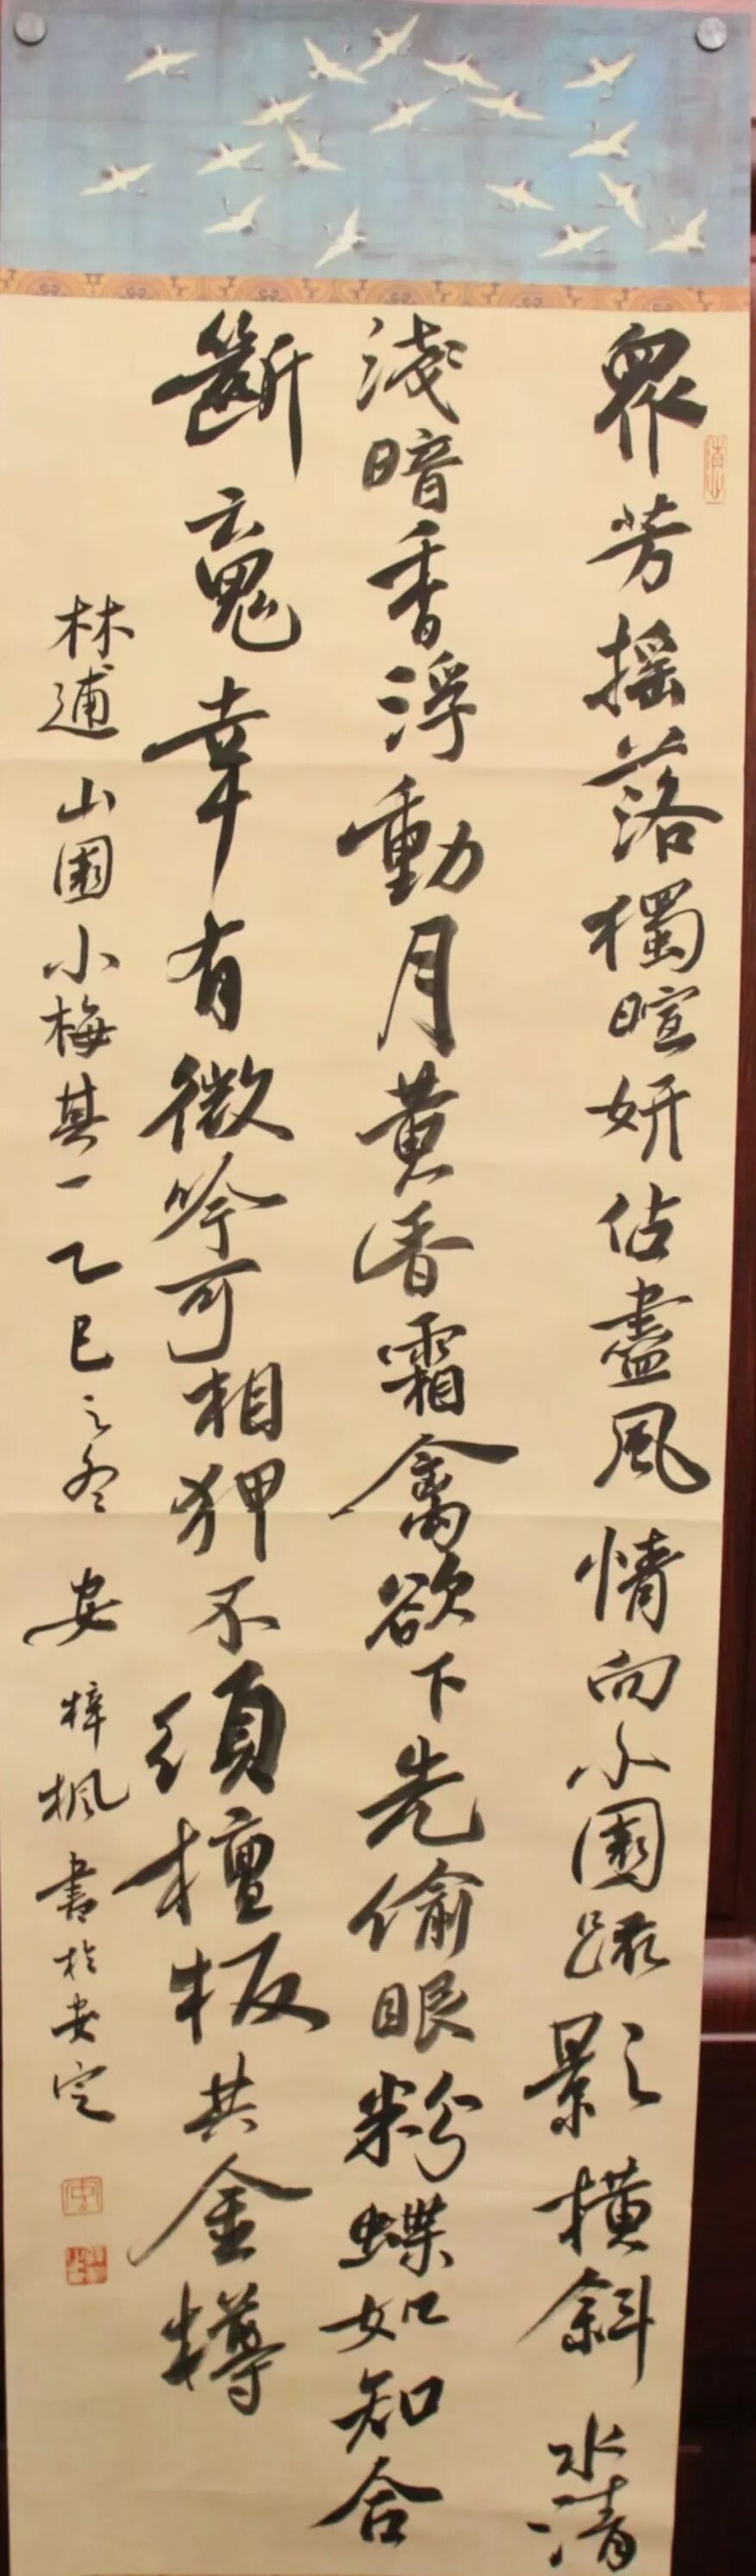 眾芳搖落獨暄妍佔盡風情向小園疏影橫斜水清
淺暗香浮動月黃昏霜禽欲下先偷眼粉蝶如知合
斷魂幸有微吟可相狎不須檀板共金樽
林逋山園小梅其一乙巳之冬安梓楓書於安定